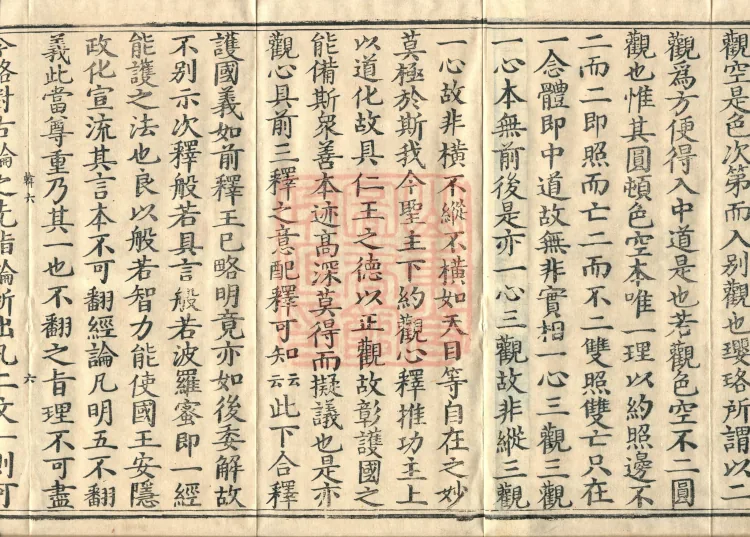 觀空是色次第而入別觀也瓔珞所謂以二
觀爲方便得入中道是也若觀色空不二圓
觀也惟其圓頓色空本唯一理以約照邊不
二而二即照而亡二而不二雙照雙亡只在
一念體即中道故無非實相一心三觀三觀
一心本無前後是亦一心三觀故非縱三觀
一心故非橫不縱不橫如天目等自在之妙
莫極於斯我今聖主下約觀心釋推功主上
以道化故具仁王之德以正觀故彰護國之
能備斯衆善本迹高深莫得而擬議也是亦
觀心具前三釋之意配釋可知云云此下合釋
護國義如前釋王已略明竟亦如後委解故
不別示次釋般若具言般若波羅蜜即一經
能護之法也良以般若智力能使國王安隱
政化宣流其言本不可翻經論凡明五不翻
義此當尊重乃其一也不翻之旨理不可盡
六
今略對古論之
論所出凡二文一則可